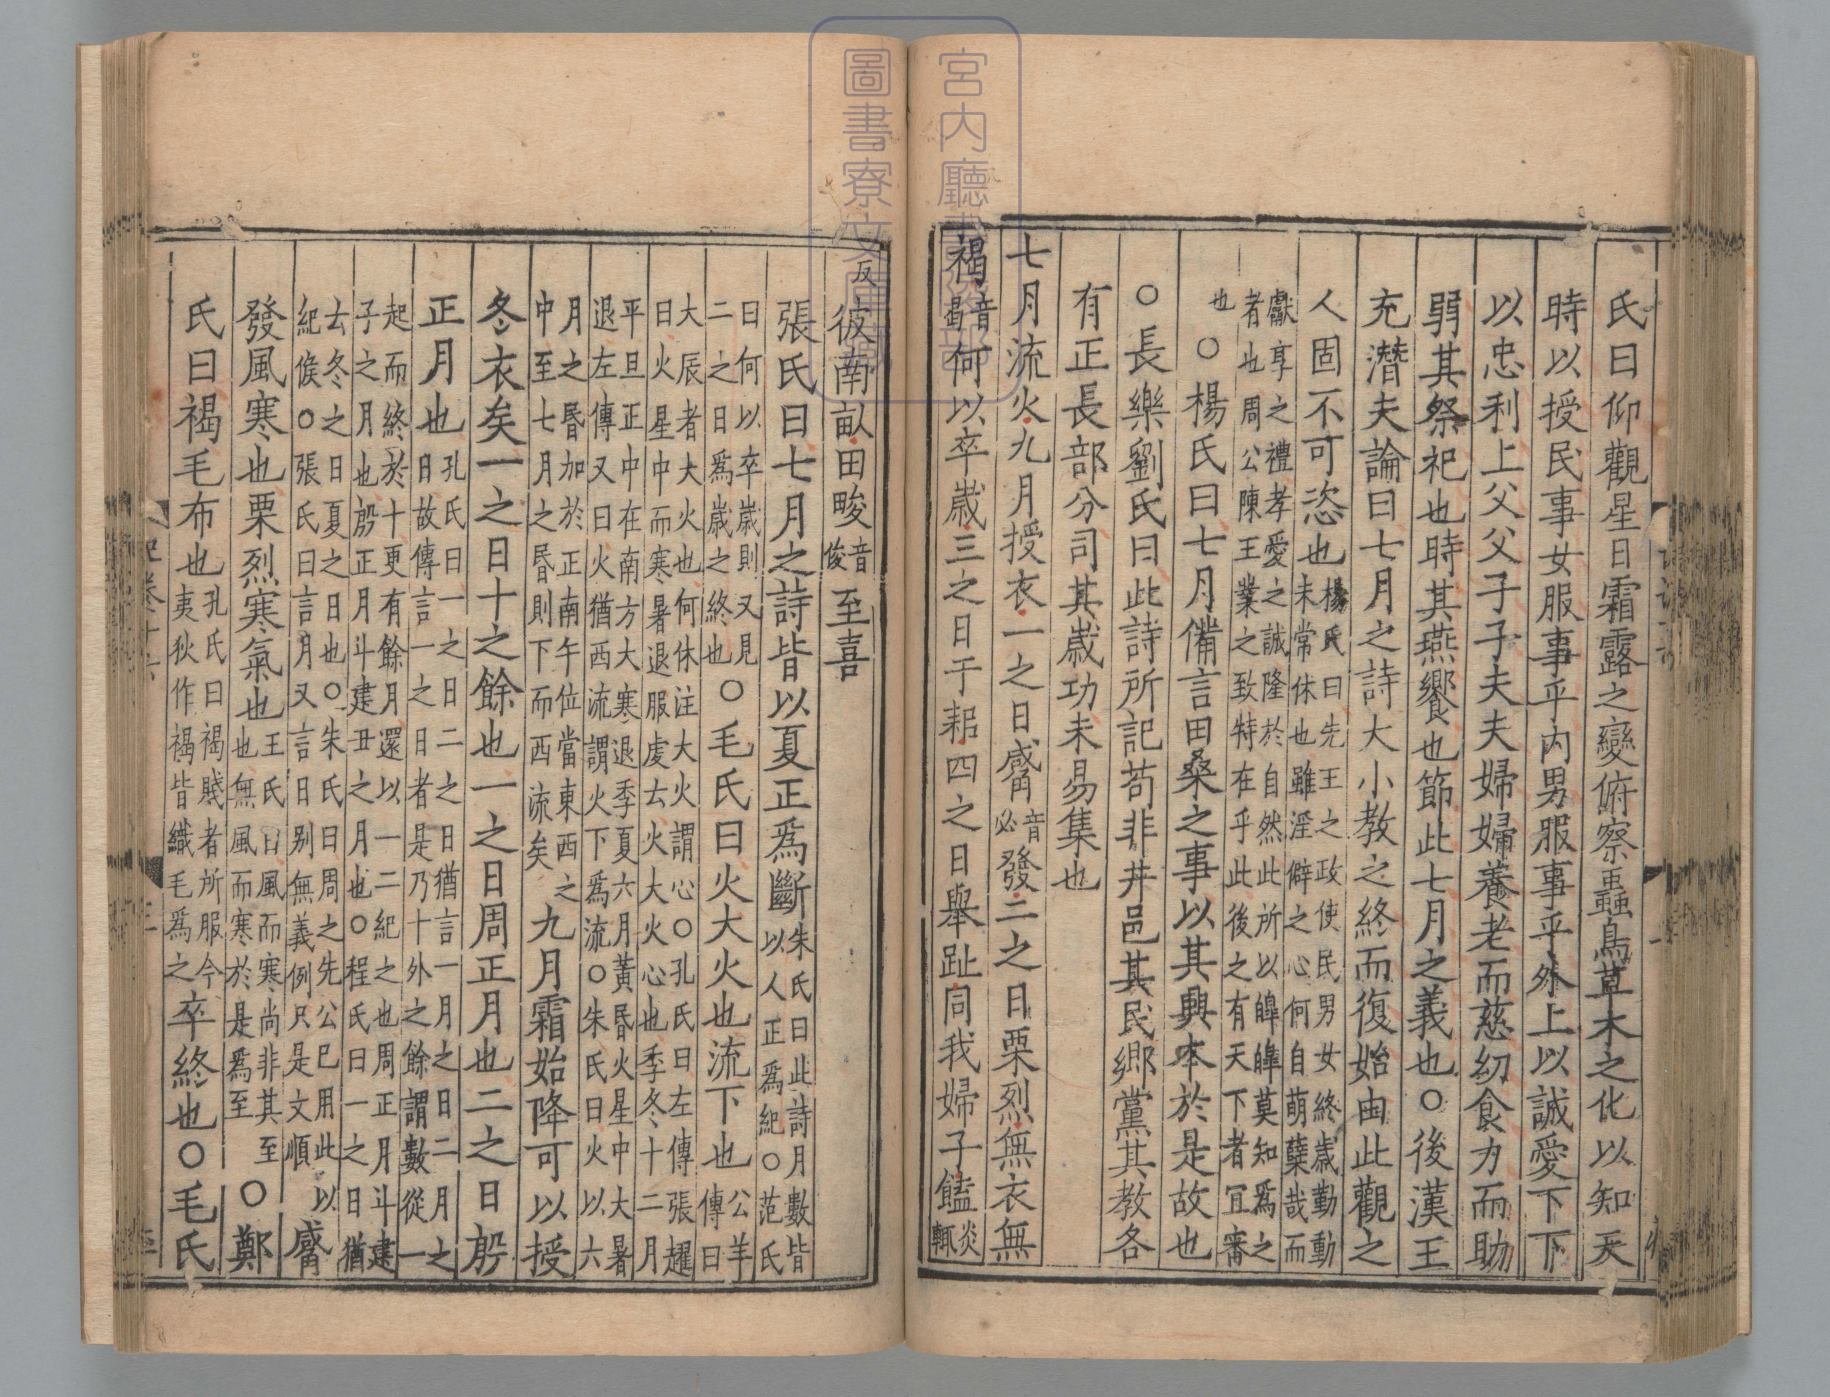 氏曰仰觀星日霜露之變俯察蟲鳥草木之化以知天
時以授民事女服事乎内男服事乎外上以誠愛下下
以忠利上父父子子夫夫婦婦養老而慈幼食力而助
弱其祭祀也時其燕饗也節此七月之義也○後漢王
充潛夫論曰七月之詩大小教之終而復始由此觀之
人固不可恣也楊氏曰先王之政使民男女終歲勤動未常休也雖淫僻之心何自萌蘖哉而
獻享之禮孝愛之誠隆於自然此所以皥皥莫知爲之者也周公陳王業之致特在乎此後之有天下者冝審
也○楊氏曰七月備言田桑之事以其興本於是故也
○長樂劉氏曰此詩所記苟非井邑其民鄉黨其教各
有正長部分司其歳功未易集也
七月流火九月授衣一之日觱音必發二之日栗烈無衣無
褐音曷何以卒歳三之日于耜四之日舉趾同我婦子饁炎輒
反彼南畝田畯音俊至喜
張氏曰七月之詩皆以夏正爲斷朱氏曰此詩月數皆以人正爲紀○范氏
曰何以卒歳則又見二之日爲歳之終也○毛氏曰火大火也流下也公羊傳曰
大辰者大火也何休注大火謂心○孔氏曰左傳張趯曰火星中而寒暑退服虔云火大火心也季冬十二月
平旦正中在南方大寒退季夏六月黃昏火星中大暑退左傳又曰火猶西流謂火下爲流○朱氏曰火以六
月之昏加於正南午位當東西之中至七月之昏則下而西流矣九月霜始降可以授
冬衣矣一之日十之餘也一之日周正月也二之日殷
正月也孔氏曰一之日二之日猶言一月之日二月之日故傳言一之日者是乃十外之餘謂數從一
起而終於十更有餘月還以一二紀之也周正月斗建子之月也殷正月斗建丑之月也○程氏曰一之日猶
云冬之日夏之日也○朱氏曰周之先公已用此以紀候○張氏曰言月又言日别無義例只是文順觱
發風寒也栗烈寒氣也王氏曰風而寒尚非其至也無風而寒於是爲至○鄭
氏曰褐毛布也孔氏曰褐賤者所服今夷狄作褐皆織毛爲之卒終也○毛氏